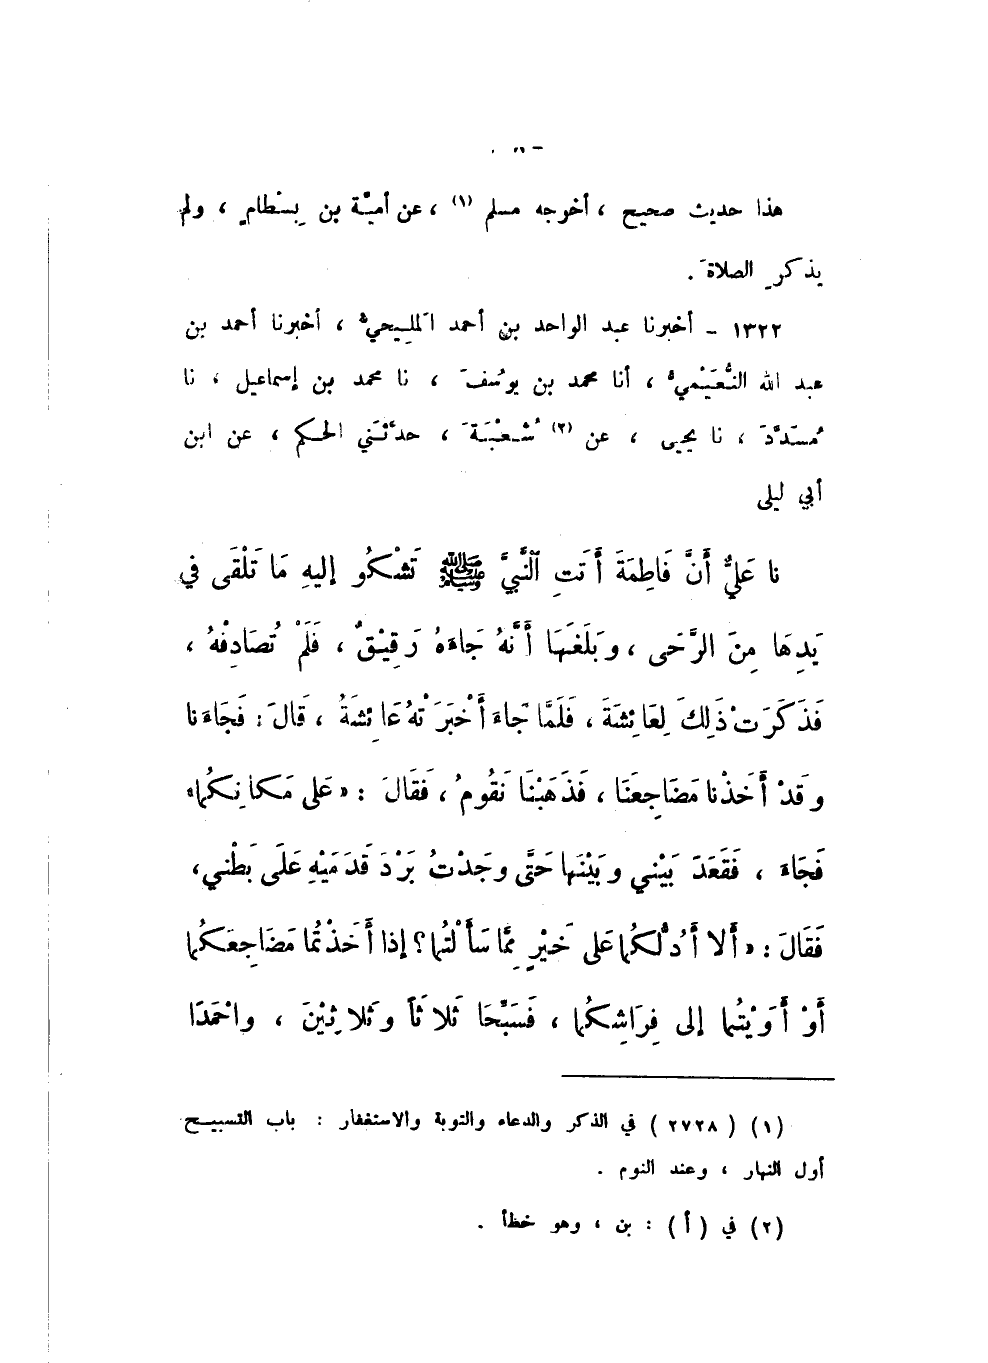 هذا حديث صحيح ، أخرجه مسلم (١) ، عن أميَّة بن بِسْطامٍ ، ولم
يذكرِ الصلاةَ .
١٣٢٢ – أخبرنا عبد الواحد بن أحمد المَلِيحيُّ ، أخبرنا أحمد بن
عبد الله النُّعَيْميُّ ، أنا محمد بن يوسُفَ ، نا محمد بن إسماعيل ، نا
مُسَدَّدَ ، نا يحيى ، عن (٢) شُعْبَةَ ، حدَّثَني الحكم ، عن ابن
أبي ليلى
نا عَليٌّ أَنَّ فَاطِمَةَ أَتَتِ النَّبيَّ ﷺ تَشْكُو إليهِ مَا تَلْقَى في
يَدِهَا مِنَ الرَّحَى ، وبَلَغَهَا أَنَّهُ جَاءَهُ رَقِيْقٌ ، فَلَمْ تُصَادِفْهُ ،
فَذَكَرَتْ ذَلِكَ لِعَائِشَةَ ، فَلَمَّا جَاءَ أَخْبَرَتْهُ عَائِشَةُ ، قَالَ : فَجَاءَنا
وقَدْ أَخَذْنا مَضَاجِعَنَا ، فَذَهَبْنَا نَقُومُ ، فَقَالَ : « عَلى مَكانِكُما»
فَجَاءَ ، فَقَعَدَ بَيْني وبَيْنَها حَتَّى وجَدْتُ بَرْدَ قَدَمَيْهِ عَلَى بَطْني ،
فَقَالَ : « أَلا أَدُلُّكُما عَلى خَيْرٍ مِمَّا سَأَلْتُما ؟ إذا أَخَذْتُما مَضَاجِعَكُما
أَوْ أَوَيْتُما إلى فِرَاشِكُما ، فَسَبِّحَا ثَلاثَاً وثَلاثِيْنَ ، واحْمَدَا
(١) ( ٢٧٢٨ ) في الذكر والدعاء والتوبة والاستغفار : باب التسبيح
أول النهار ، وعند النوم .
(٢) في ( أ ) : بن ، وهو خطأ .